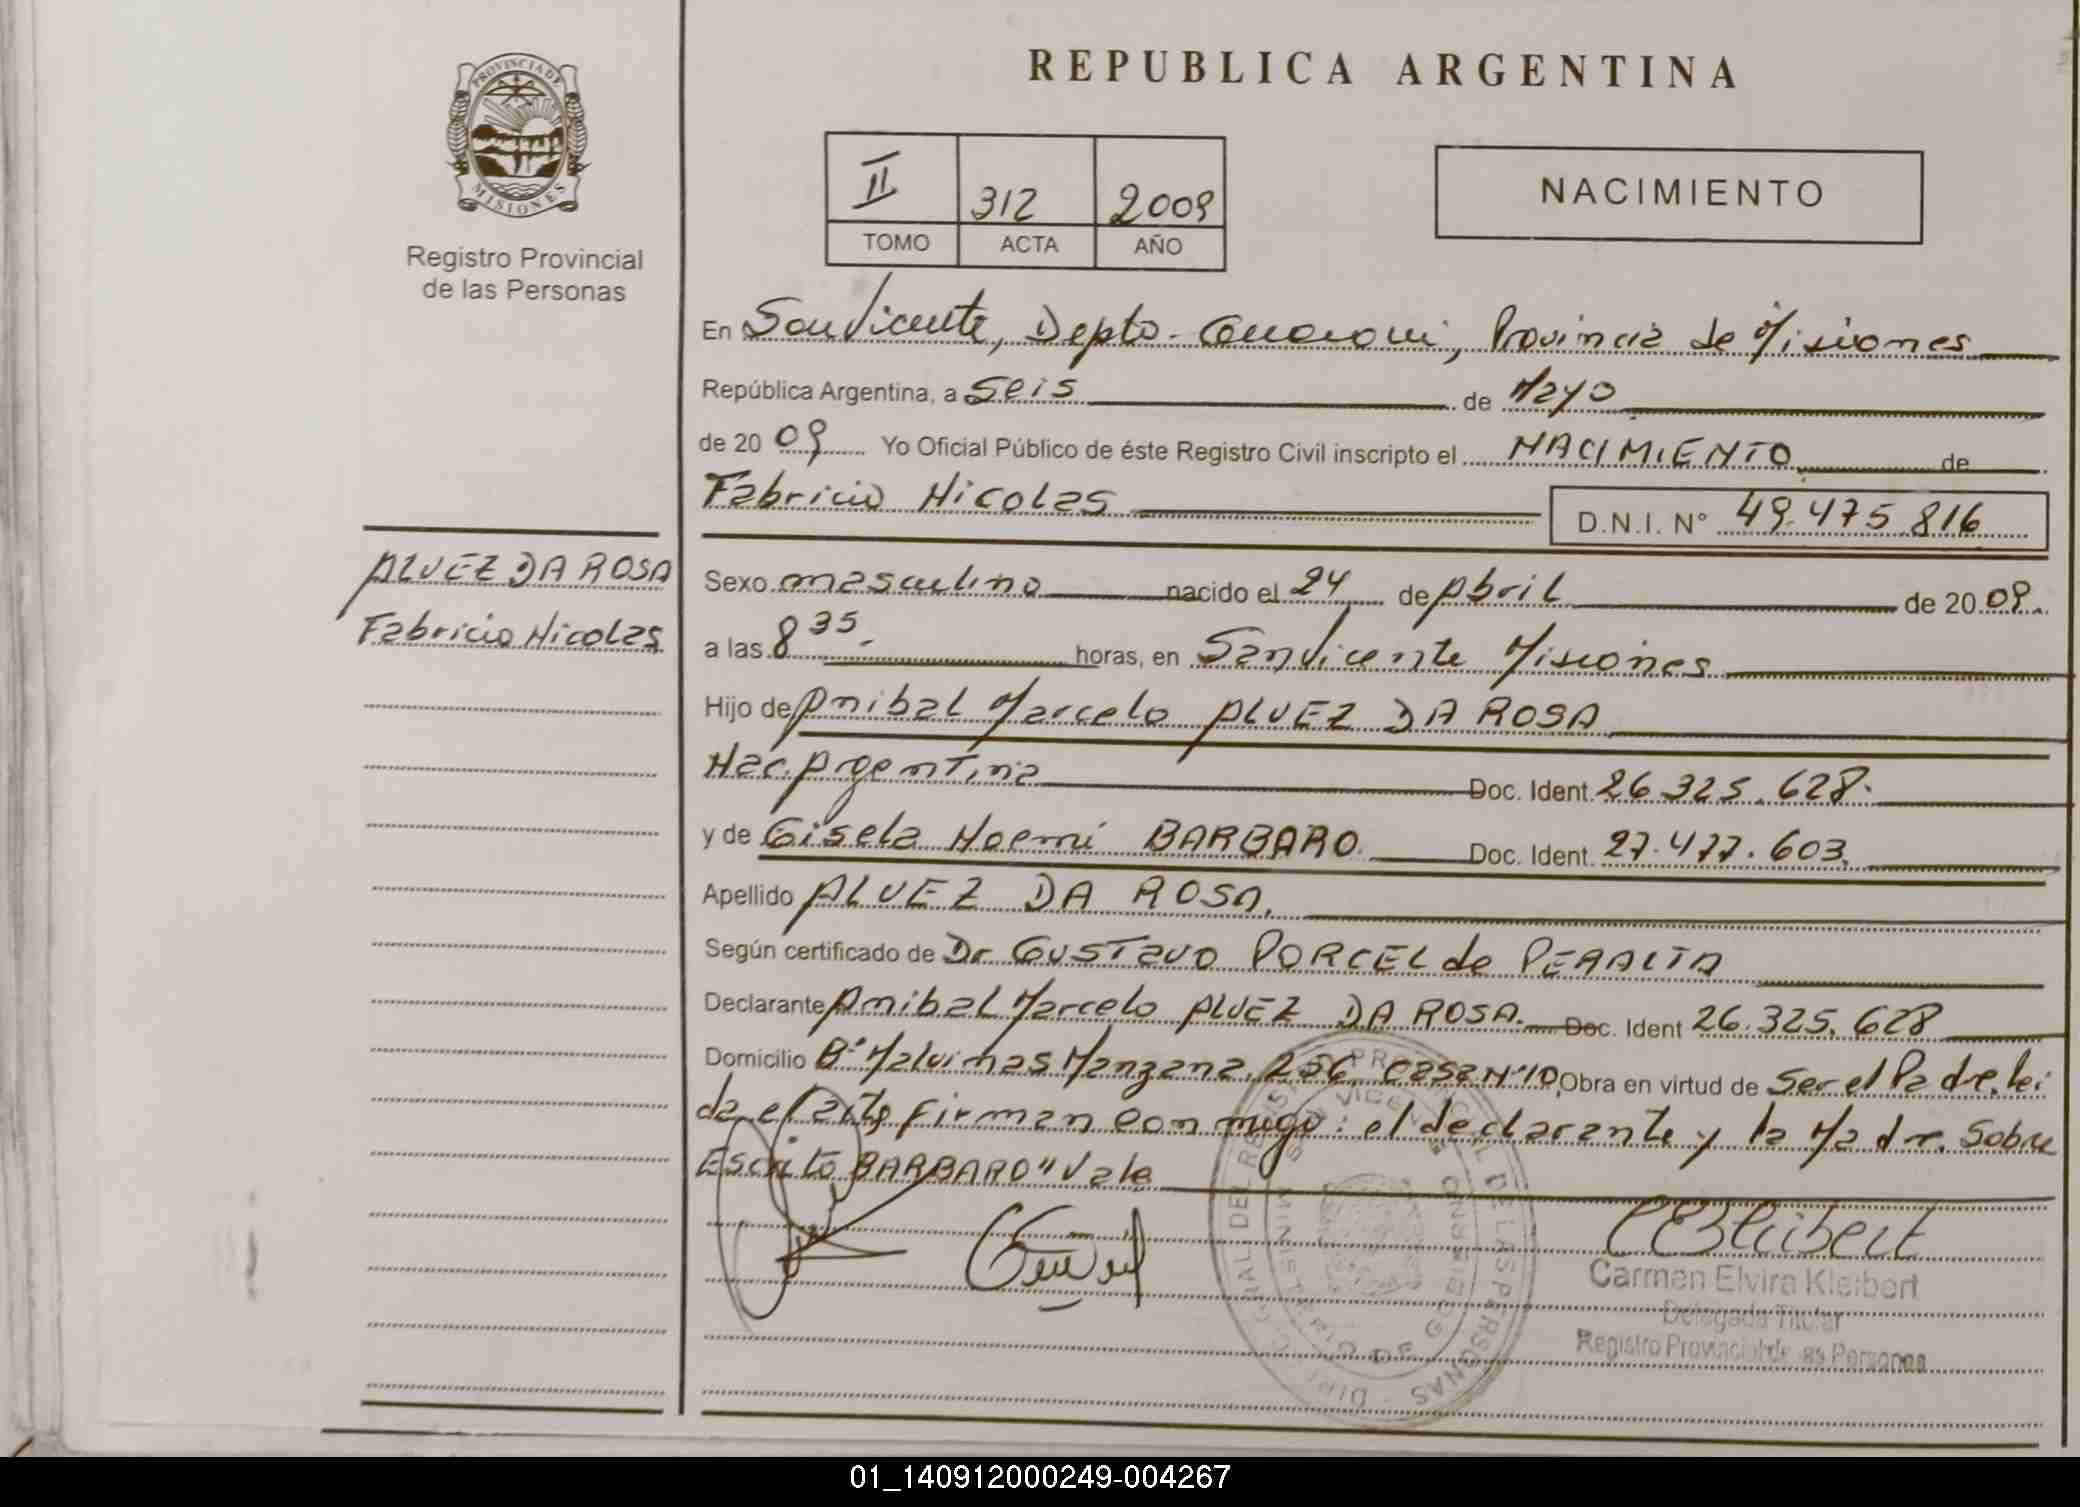 PROVINCIA DE
MISIONES
Registro Provincial
de las Personas
ALVEZ DA ROSA
Fabricio Nicolas
REPUBLICA ARGENTINA
II 312 2009
TOMO ACTA AÑO
NACIMIENTO
En San Vicente, Depto. Guaraní, Provincia de Misiones
República Argentina, a Seis de Mayo
de 20 09 Yo Oficial Público de éste Registro Civil inscripto el NACIMIENTO de
Fabricio Nicolas D.N.I. N° 49.475.816
Sexo masculino nacido el 24 de Abril de 20 09.
a las 8 35. horas, en San Vicente Misiones
Hijo de Anibal Marcelo ALVEZ DA ROSA
Nac. Argentina Doc. Ident. 26.325.628.
y de Gisela Noemi BARBARO. Doc. Ident. 27.477.603.
Apellido ALVEZ DA ROSA.
Según certificado de Dr GUSTavo PORCEL de PERALTA
Declarante Anibal Marcelo ALVEZ DA ROSA. Doc. Ident 26.325.628
Domicilio B° Malvinas Manzana 256 casa N°10, Obra en virtud de Ser el Padre. lei
da el acta firman conmigo: el declarante y la Madre. Sobre
Escrito BARBARO" Vale
Carmen Elvira Kleibert
Delegada Titular
Registro Provincial de las Personas
01_140912000249-004267